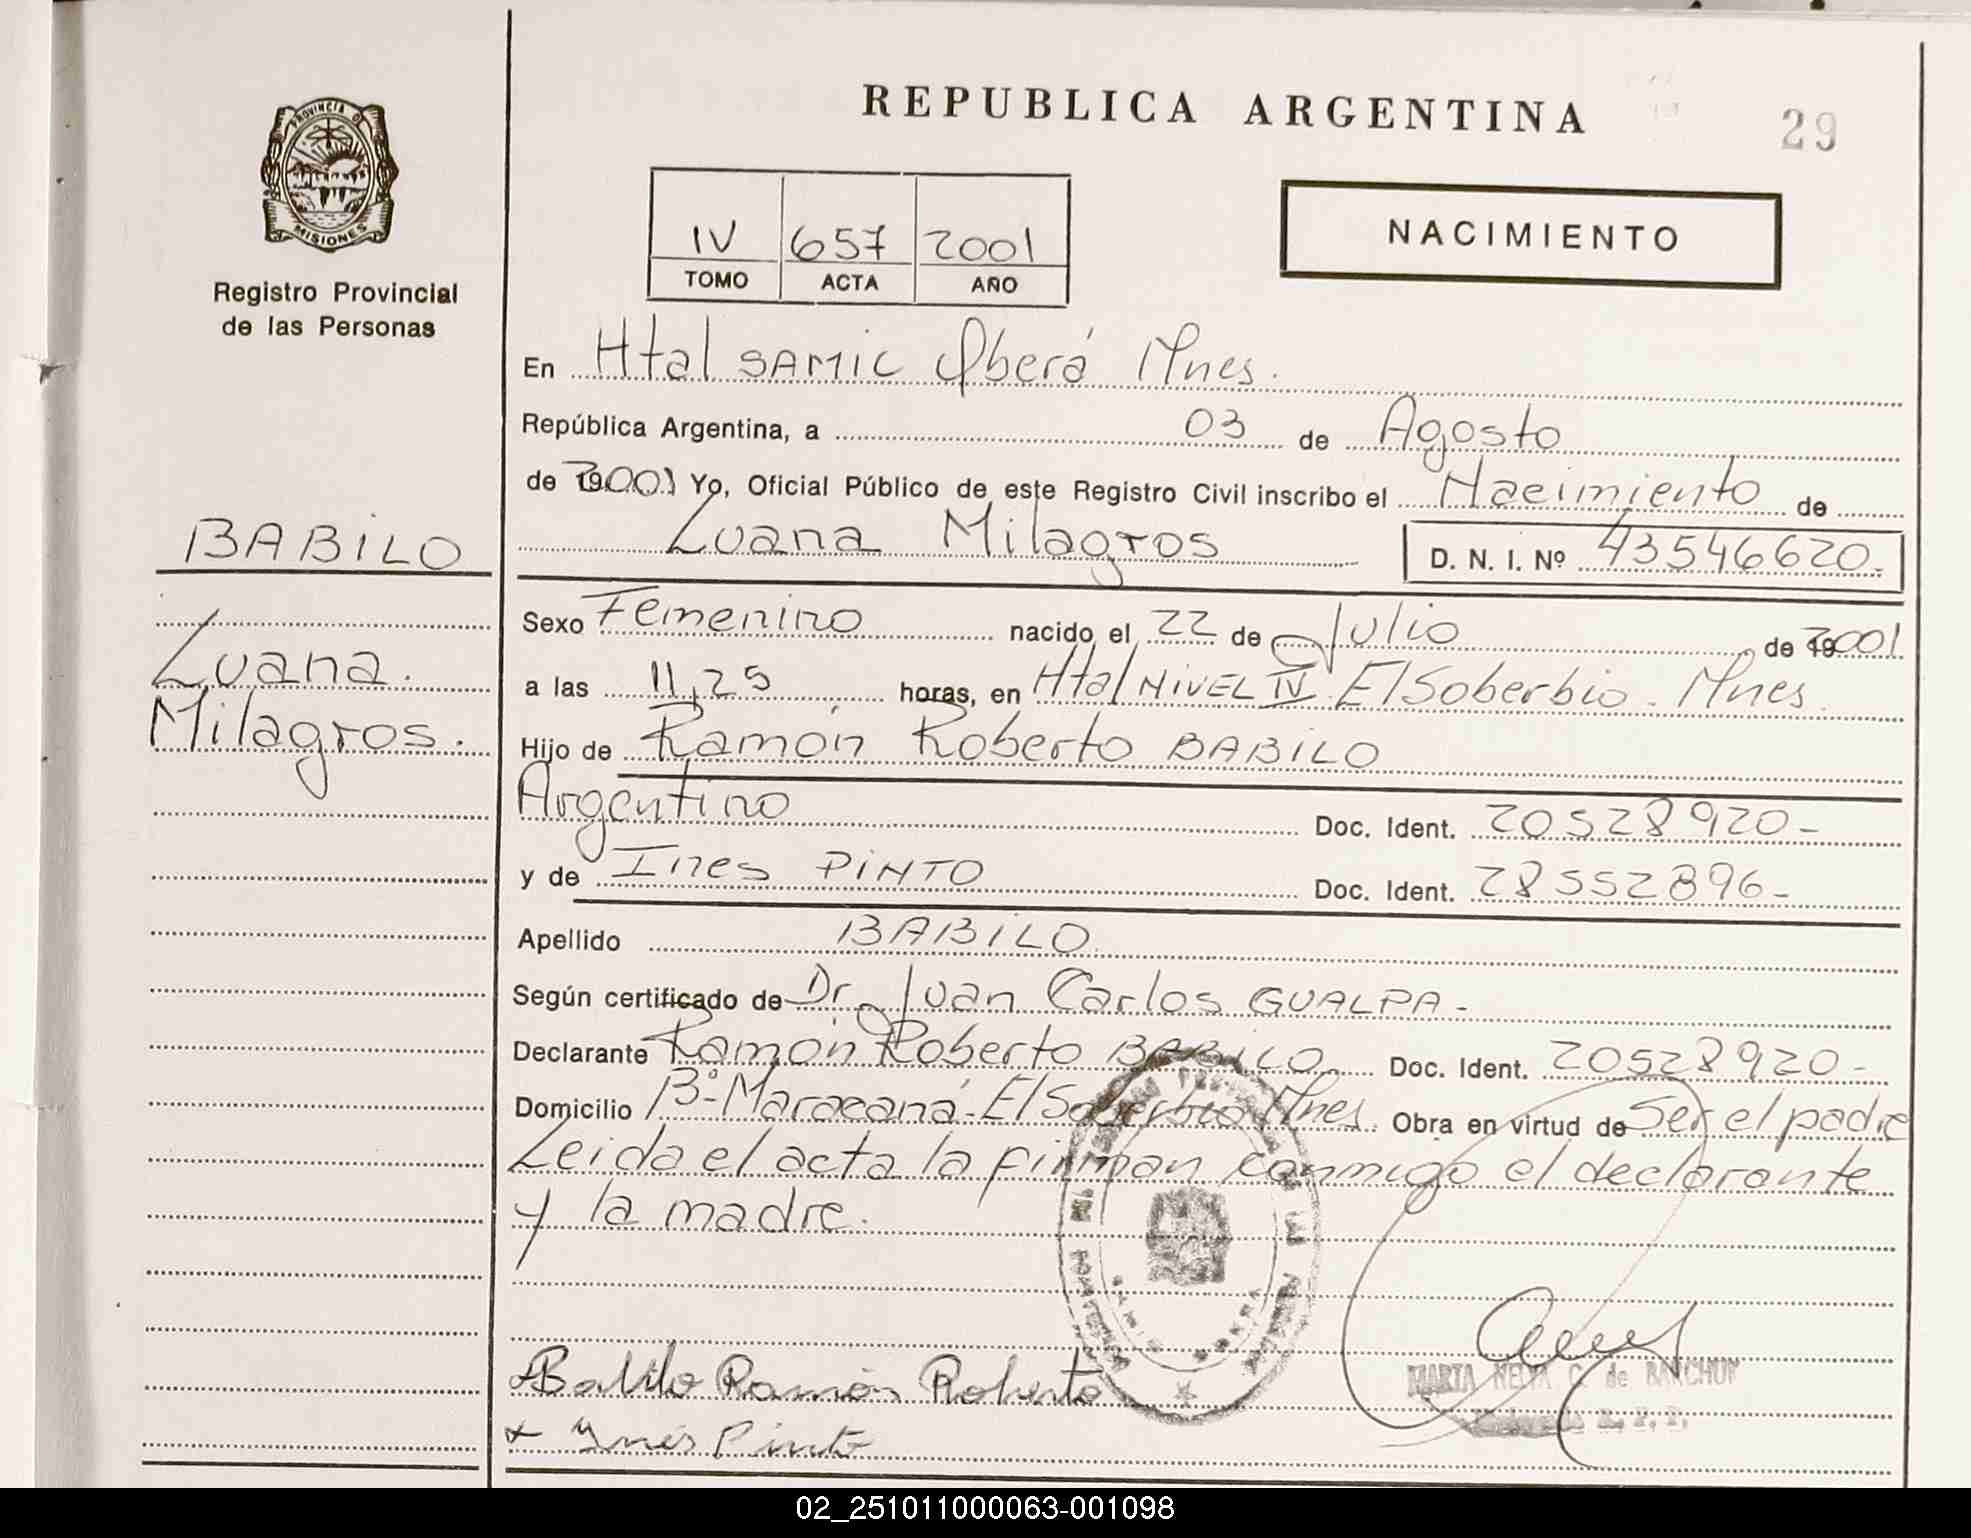 REPUBLICA ARGENTINA
29
PROVINCIA D
MISIONES
Registro Provincial
de las Personas
IV 657 2001
TOMO ACTA AÑO
NACIMIENTO
En Htal SAMIC Oberá Mnes.
República Argentina, a 03 de Agosto
de 2001 Yo, Oficial Público de este Registro Civil inscribo el Nacimiento de
Luana Milagros D. N. I. Nº 43546620-
BABILO
Luana
Milagros.
Sexo Femenino nacido el 22 de Julio de 2001
a las 11,25 horas, en Htal NIVEL IV El Soberbio. Mnes.
Hijo de Ramón Roberto BABILO
Argentino Doc. Ident. 20528920-
y de Ines PINTO Doc. Ident. 28552896-
Apellido BABILO
Según certificado de Dr. Juan Carlos GUALPA-
Declarante Ramón Roberto BABILO Doc. Ident. 20528920-
Domicilio Bº-Maracaná-El Soberbio Mnes. Obra en virtud de Ser el padre
Leida el acta la firman conmigo el declarante
y la madre.
Babilo Ramón Roberto
+ Ynés Pinto
MARTA C. de
R. P. P.
02_251011000063-001098